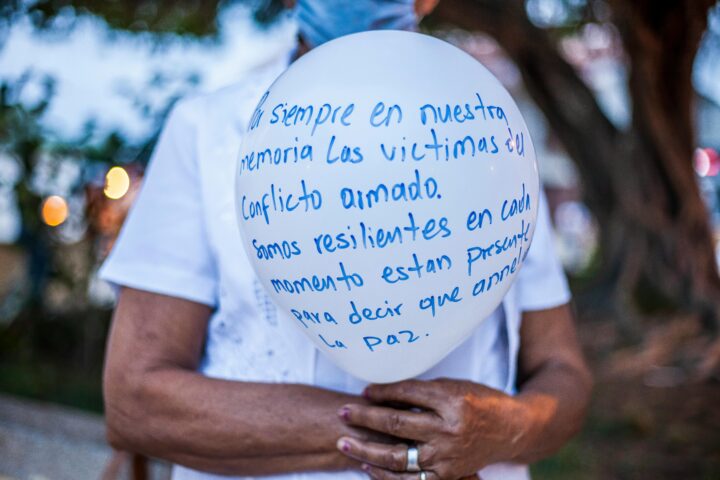 Por siempre en nuestra
memoria Las victimas del
Conflicto armado.
Somos resilientes en cada
momento estan presente
para decir que annelo
La paz.